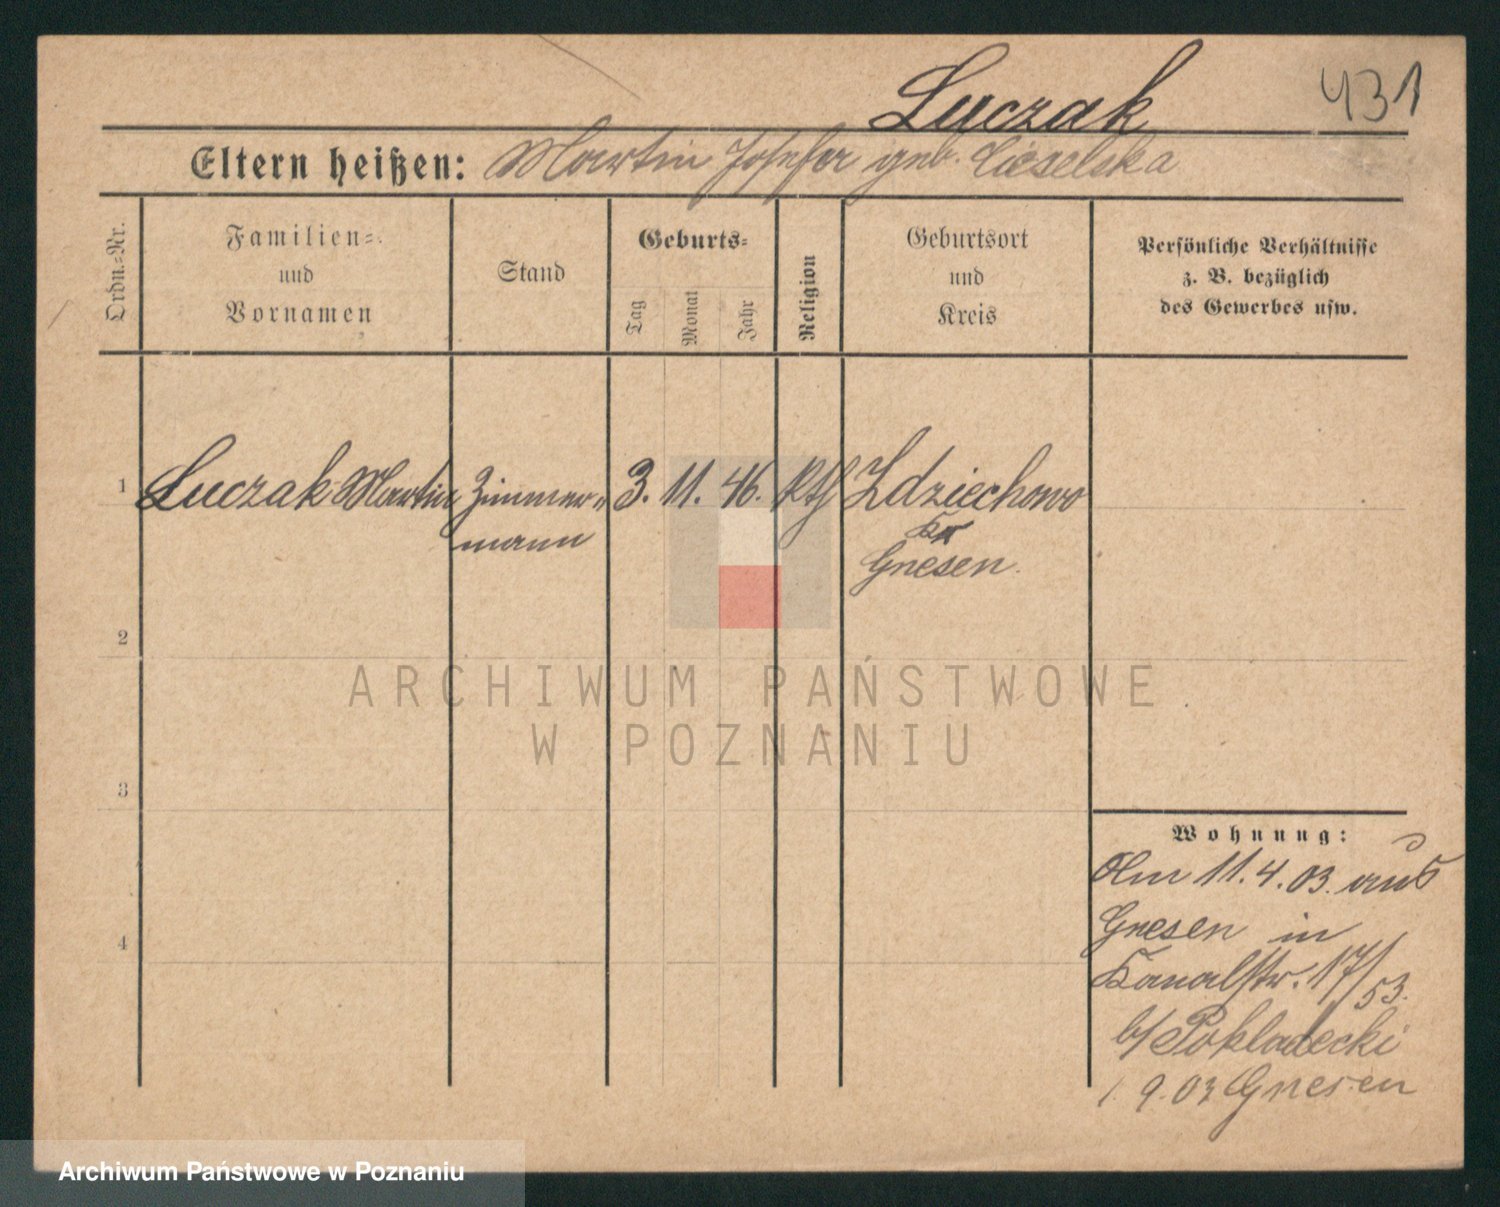 431
Luczak
Eltern heißen: Martin Josefa geb. Cieselska
Ordn.=Nr.
Familien=
und
Vornamen
Stand
Geburts=
Tag
Monat
Jahr
Religion
Geburtsort
und
Kreis
Persönliche Verhältnisse
z. B. bezüglich
des Gewerbes usw.
1 Luczak Martin Zimmer= 3. 11. 46. kth Zdziechowo
mann Kr
Gnesen.
2
ARCHIWUM PAŃSTWOWE
W POZNANIU
3
Wohnung:
Am 11.4.03. aus
Gnesen in
4
Kanalstr. 17/53.
b/ Pokladecki
1.9.03 Gnesen
Archiwum Państwowe w Poznaniu